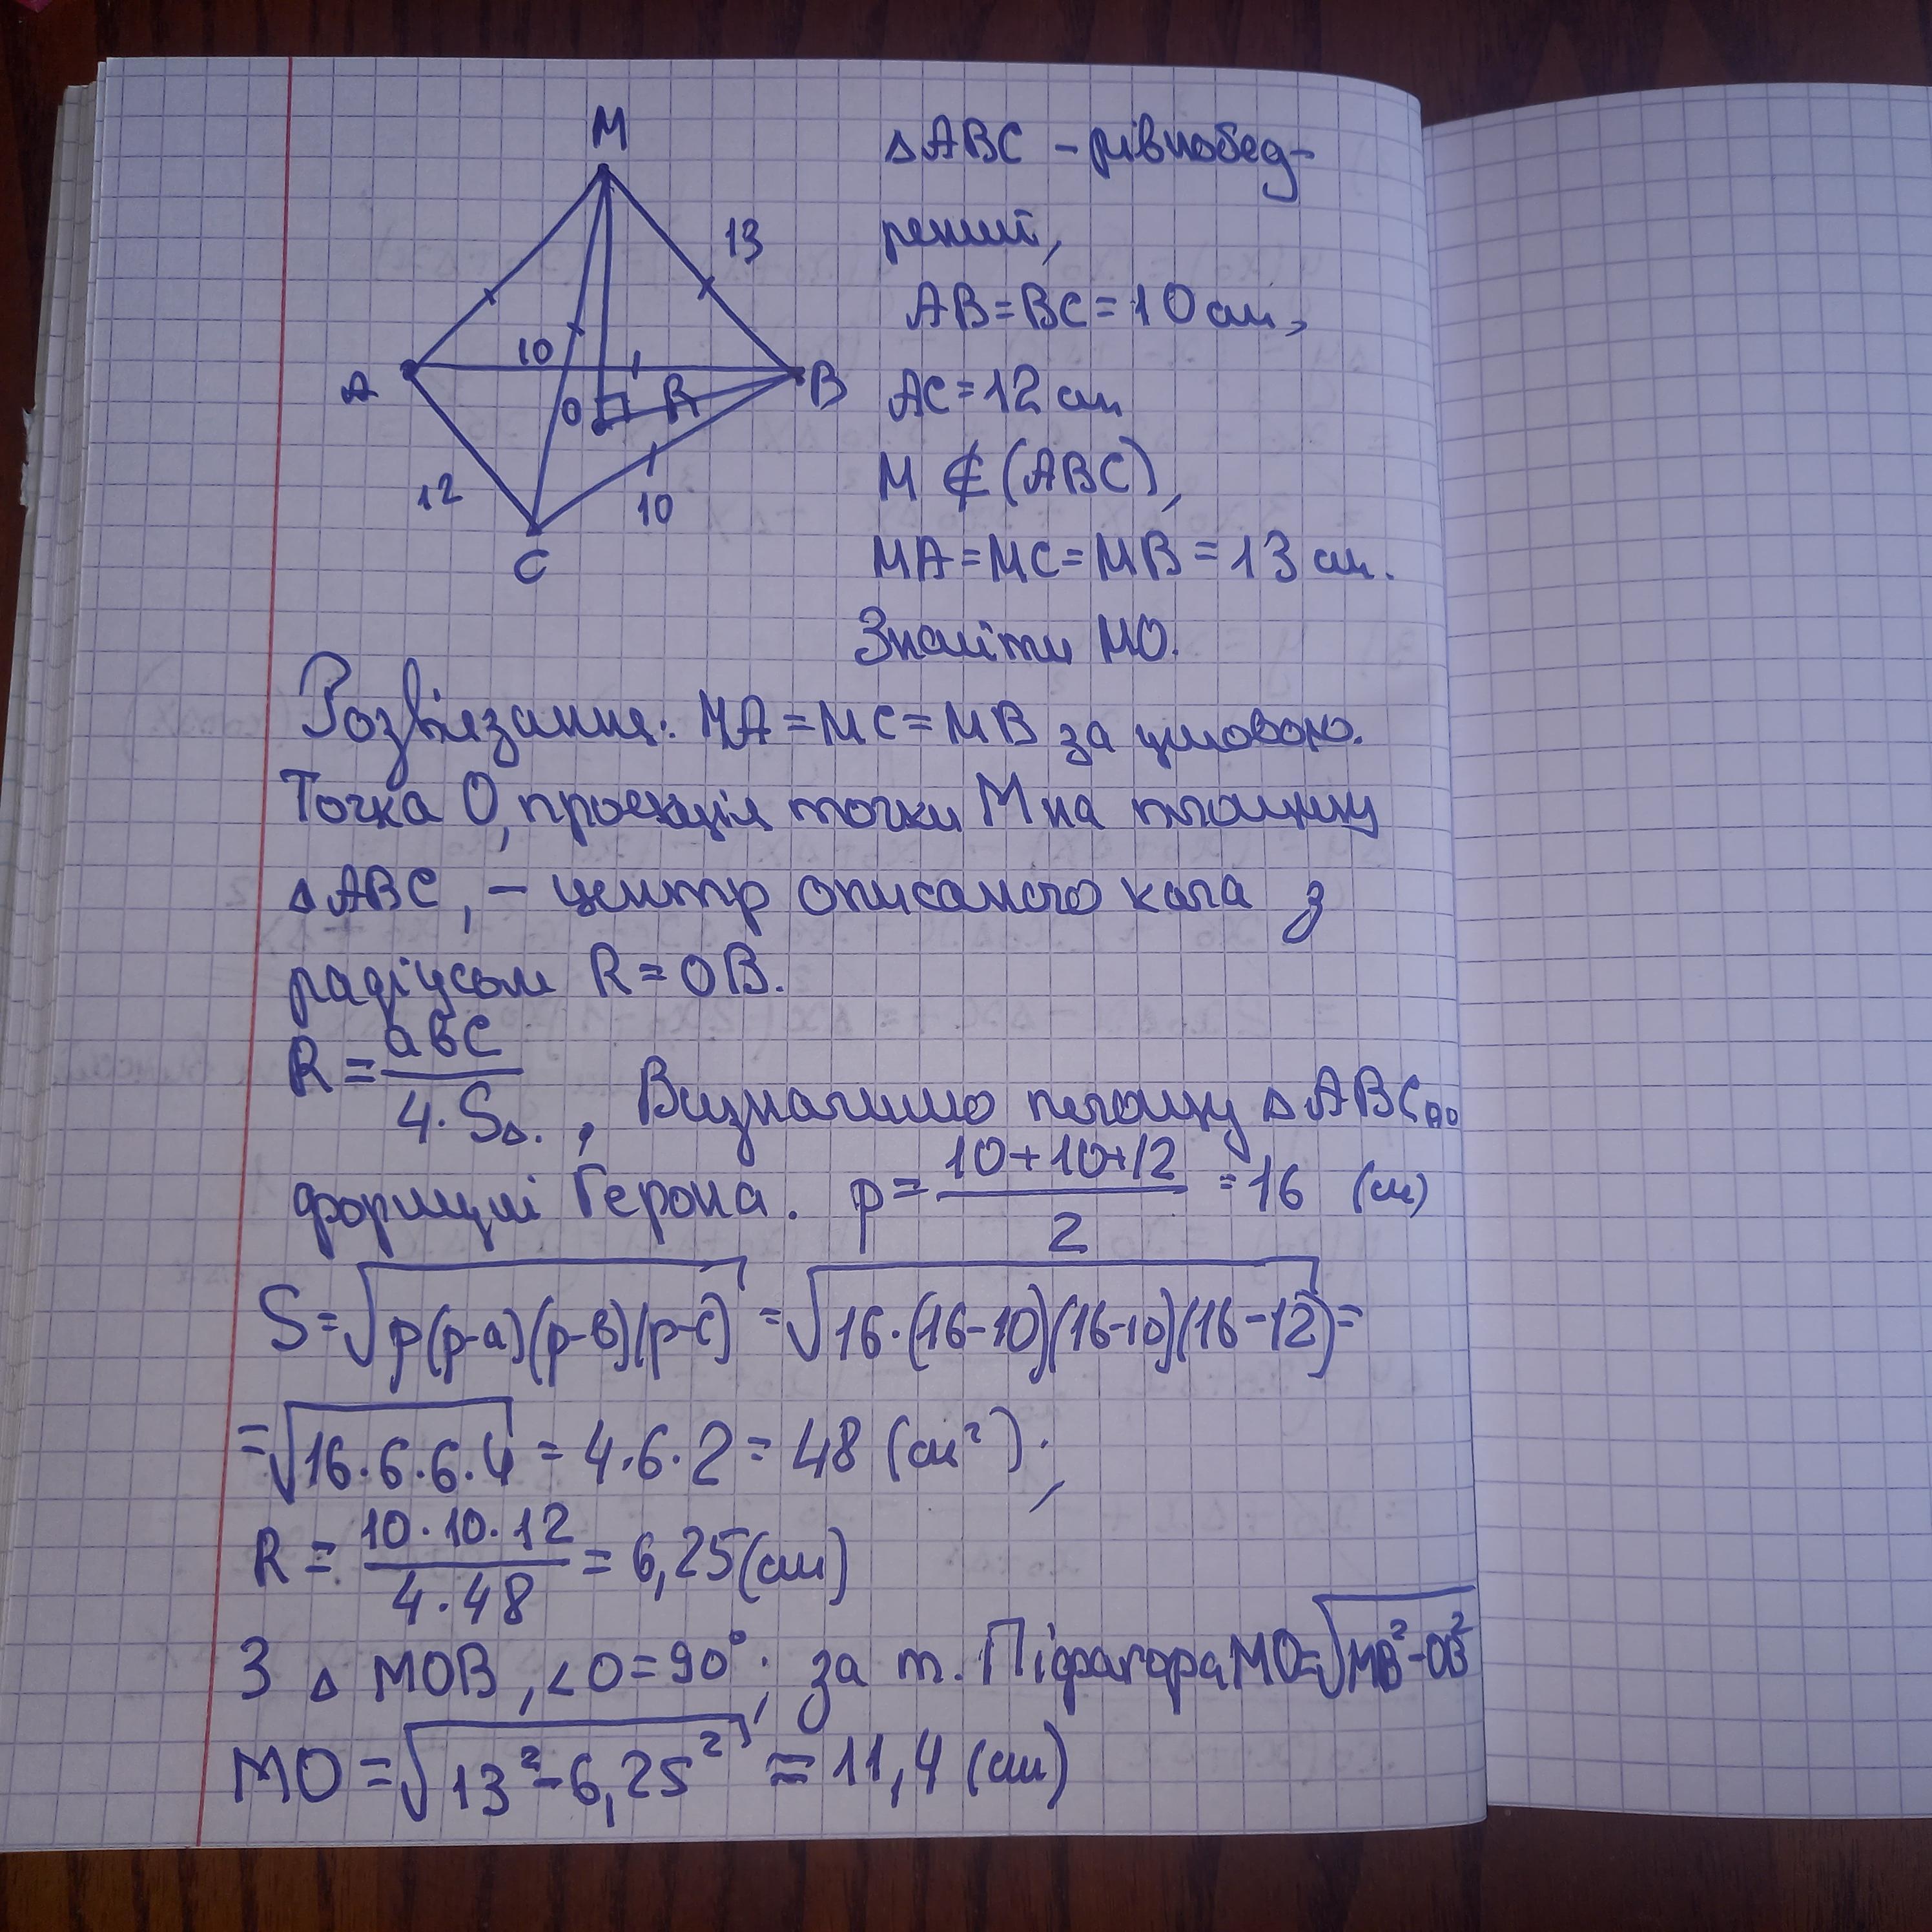 M
13
10
A
O
R
B
12
10
C
△ABC – рівнобед-
рений,
AB=BC=10 см,
AC=12 см
M ∉ (ABC),
MA=MC=MB=13 см.
Знайти MO.
Розв'язання: MA=MC=MB за умовою.
Точка O, проекція точки M на площину
△ABC, – центр описаного кола з
радіусом R=OB.
R = авс / 4·S△. , Визначимо площу △ABC по
формулі Герона. p = 10+10+12 / 2 = 16 (см)
S=√p(p-a)(p-в)(p-c) = √16·(16-10)(16-10)(16-12) =
=√16·6·6·4 = 4·6·2 = 48 (см²);
R = 10·10·12 / 4·48 = 6,25(см)
З △ MOB, ∠O=90°; за т. Піфагора MO=√MB²-OB²
MO = √13²-6,25² ≈ 11,4 (см)